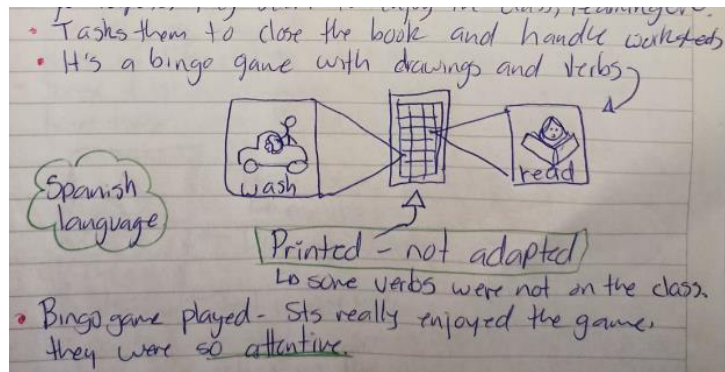 to enjoy in class,
• Tasks them to close the book and handle worksheets
• It's a bingo game with drawings and verbs
wash
read
Spanish
language
Printed - not adapted
↳ some verbs were not on the class.
• Bingo game played - Sts really enjoyed the game.
they were so attentive.